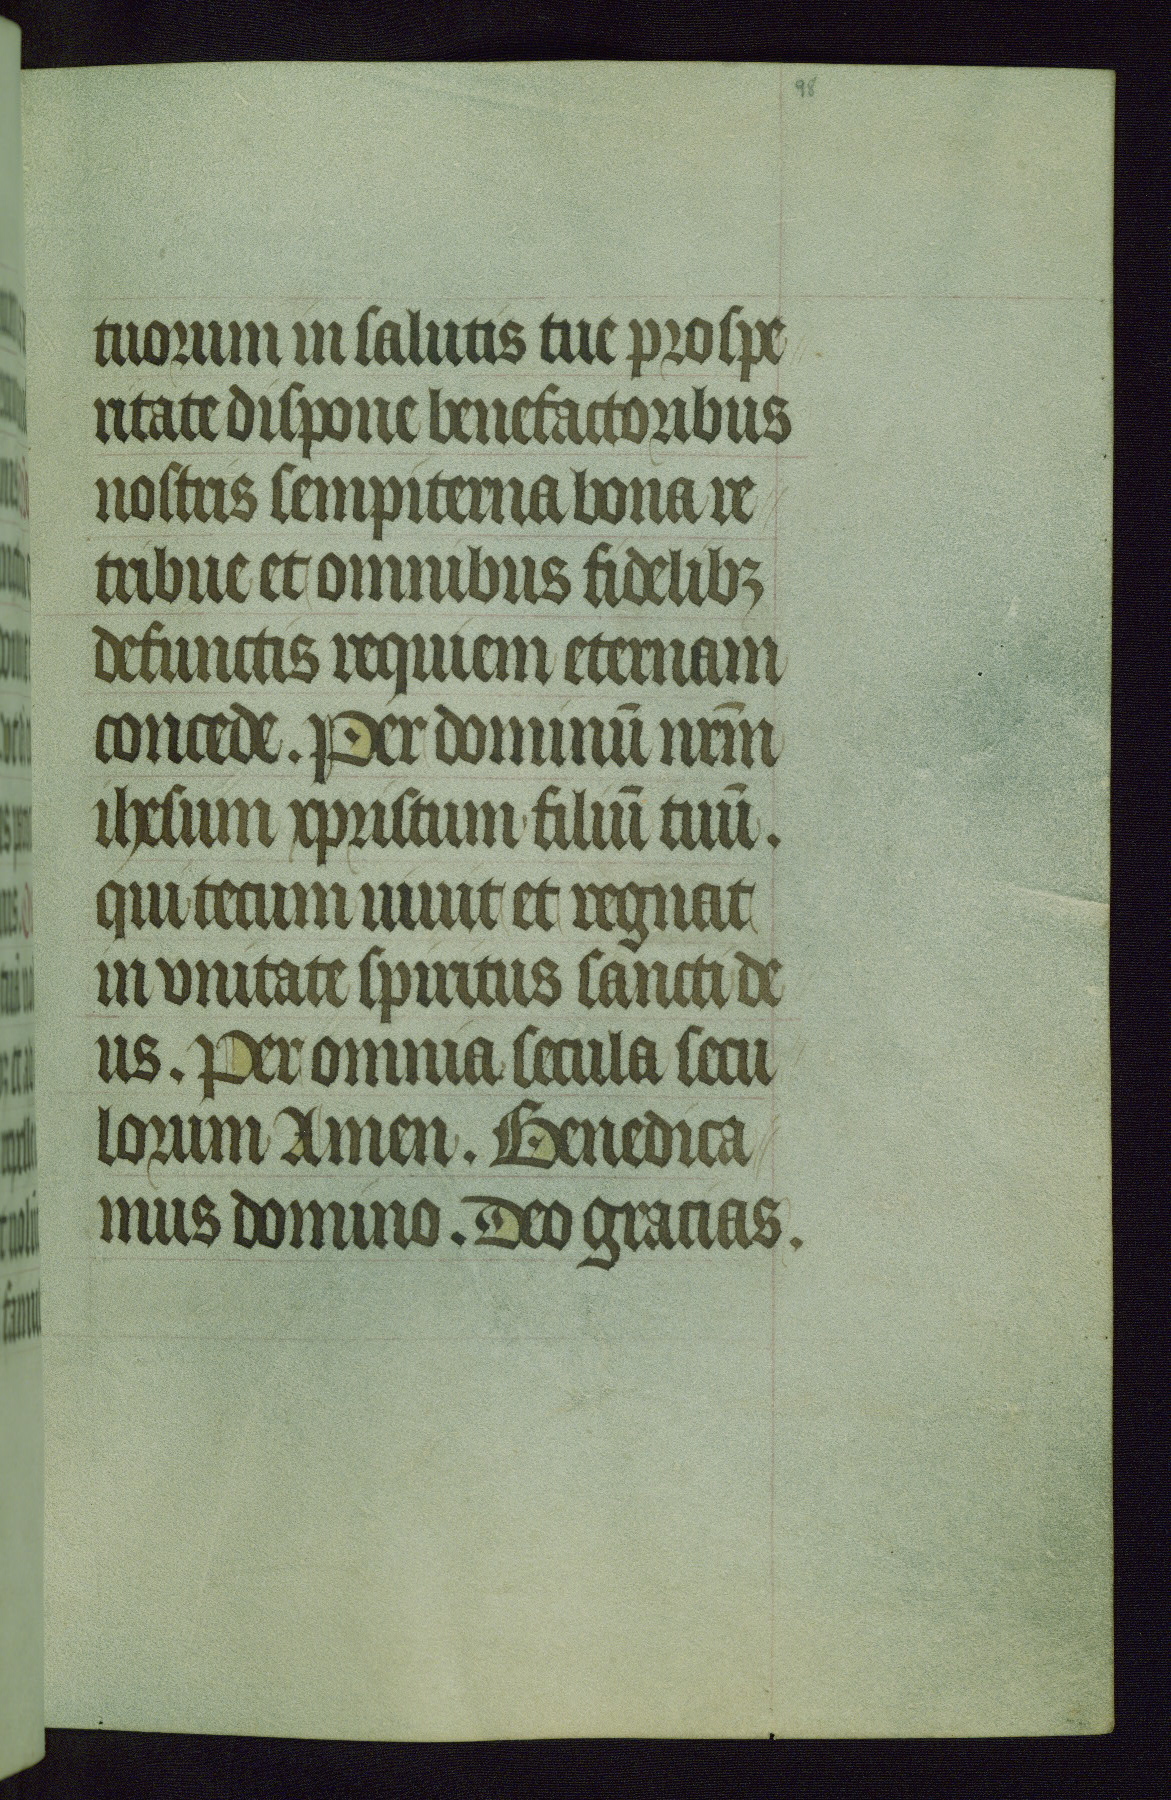 98
tuorum in salutis tue prospe
ritate dispone benefactoribus
nostris sempiterna bona re
tribue et omnibus fidelibꝫ
defunctis requiem eternam
concede. Per dominū nrm̄
ihesum xpristum filiū tuū.
qui tecum uiuit et regnat
in vnitate spiritus sancti de
us. Per omnia secula secu
lorum Amen. Benedica
mus domino. Deo gracias.